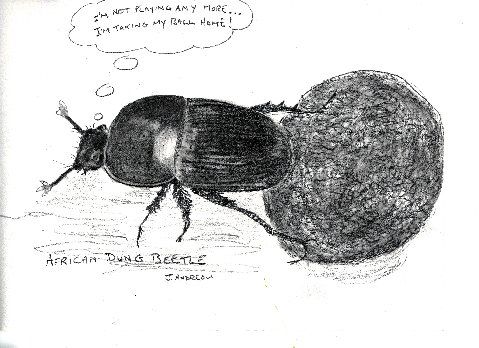 I'M NOT PLAYING ANY MORE...
I'M TAKING MY BALL HOME!
AFRICAN DUNG BEETLE
J. ANDREOU